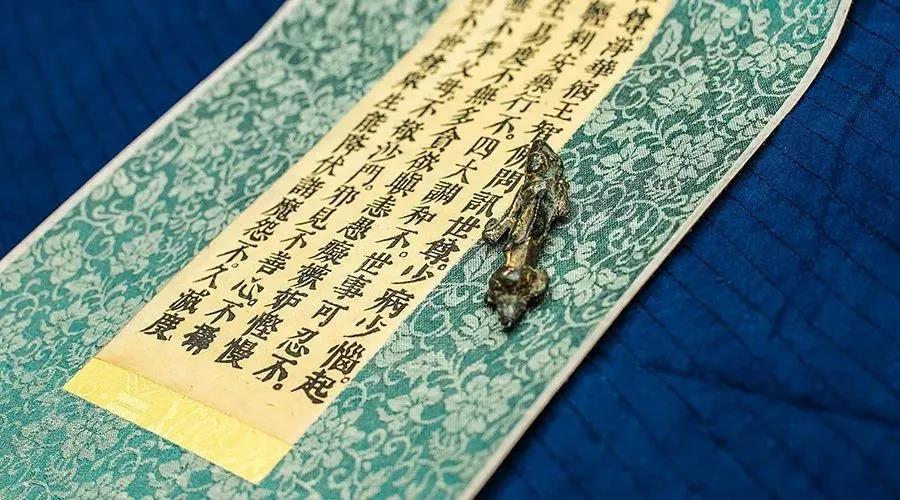 尊。淨華宿王智佛問訊世尊。少病少惱。起
輕利安樂行不。四大調和不。世事可忍不。
生易度不無多貪欲瞋恚愚癡嫉妬慳慢
無不孝父母。不敬沙門。邪見不善心。不攝
不。世尊眾生能降伏諸魔怨不。久滅度